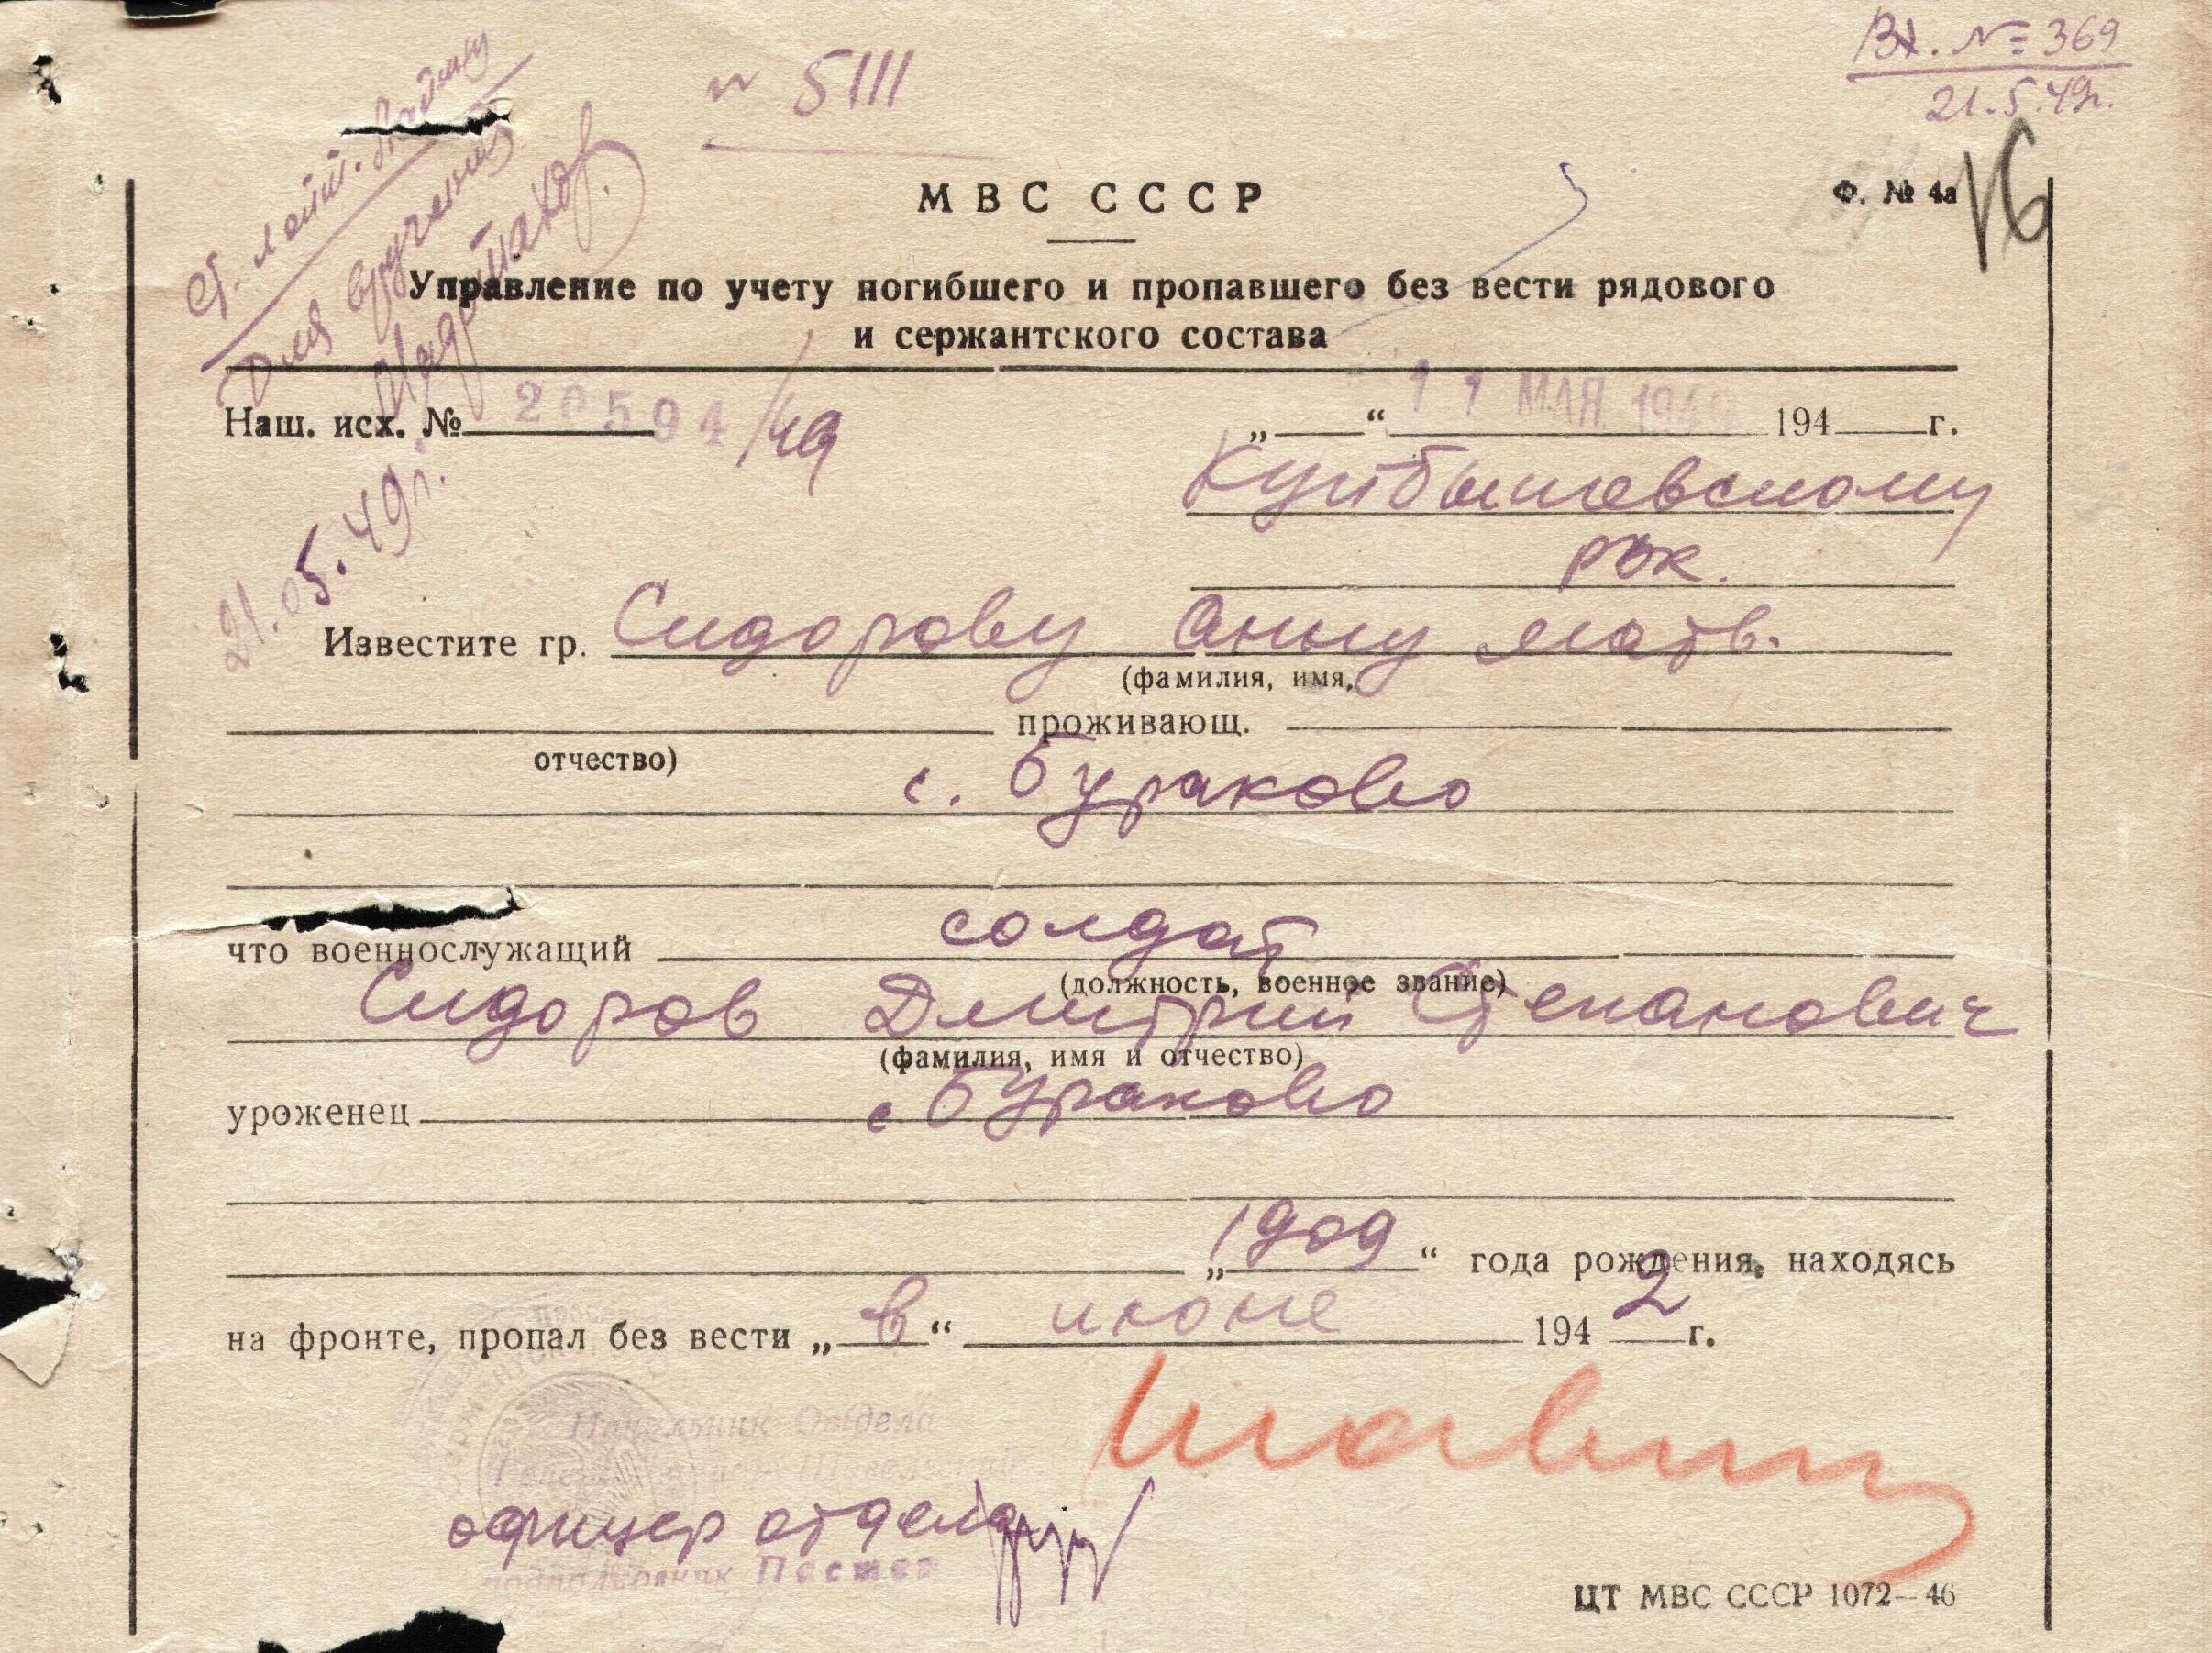 Вх. № 369
21.5.49г.
№ 5111
Ст. лейт.
Для вручения
21.05.49г.
МВС СССР
Ф. № 4а
16
Управление по учету погибшего и пропавшего без вести рядового
и сержантского состава
Наш. исх. № 20594/49 „ “ 11 МАЯ 194 194 г.
Куйбышевскому
РВК.
Известите гр. Сидорову Анну Матв.
(фамилия, имя,
проживающ.
отчество)
с. Бураково
что военнослужащий солдат
(должность, военное звание)
Сидоров Дмитрий Степанович
(фамилия, имя и отчество)
уроженец с Бураково
„1909“ года рождения, находясь
на фронте, пропал без вести „в“ июне 1942 г.
Начальник Отдела
офицер отдела
подполковник
ЦТ МВС СССР 1072—46